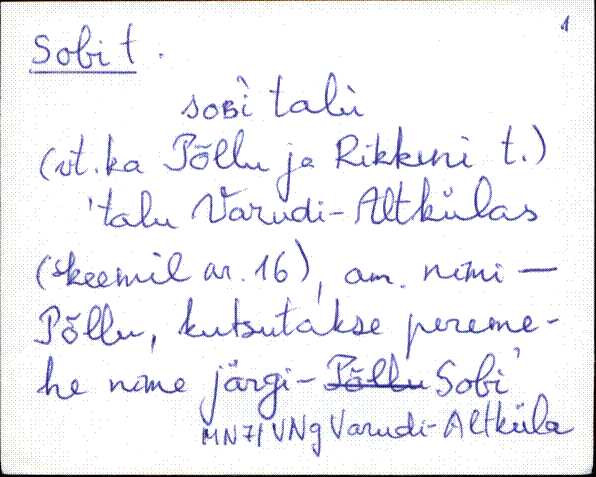 1
Sobi t.
soʙi̬ talù
(vt. ka Põllu ja Rikkeni t.)
'talu Varudi-Altkülas
(skeemil nr. 16), am. nimi —
Põllu, kutsutakse pereme-
he nime järgi - ~~Põllu~~ Sobi'
MN71 VNg Varudi-Altküla